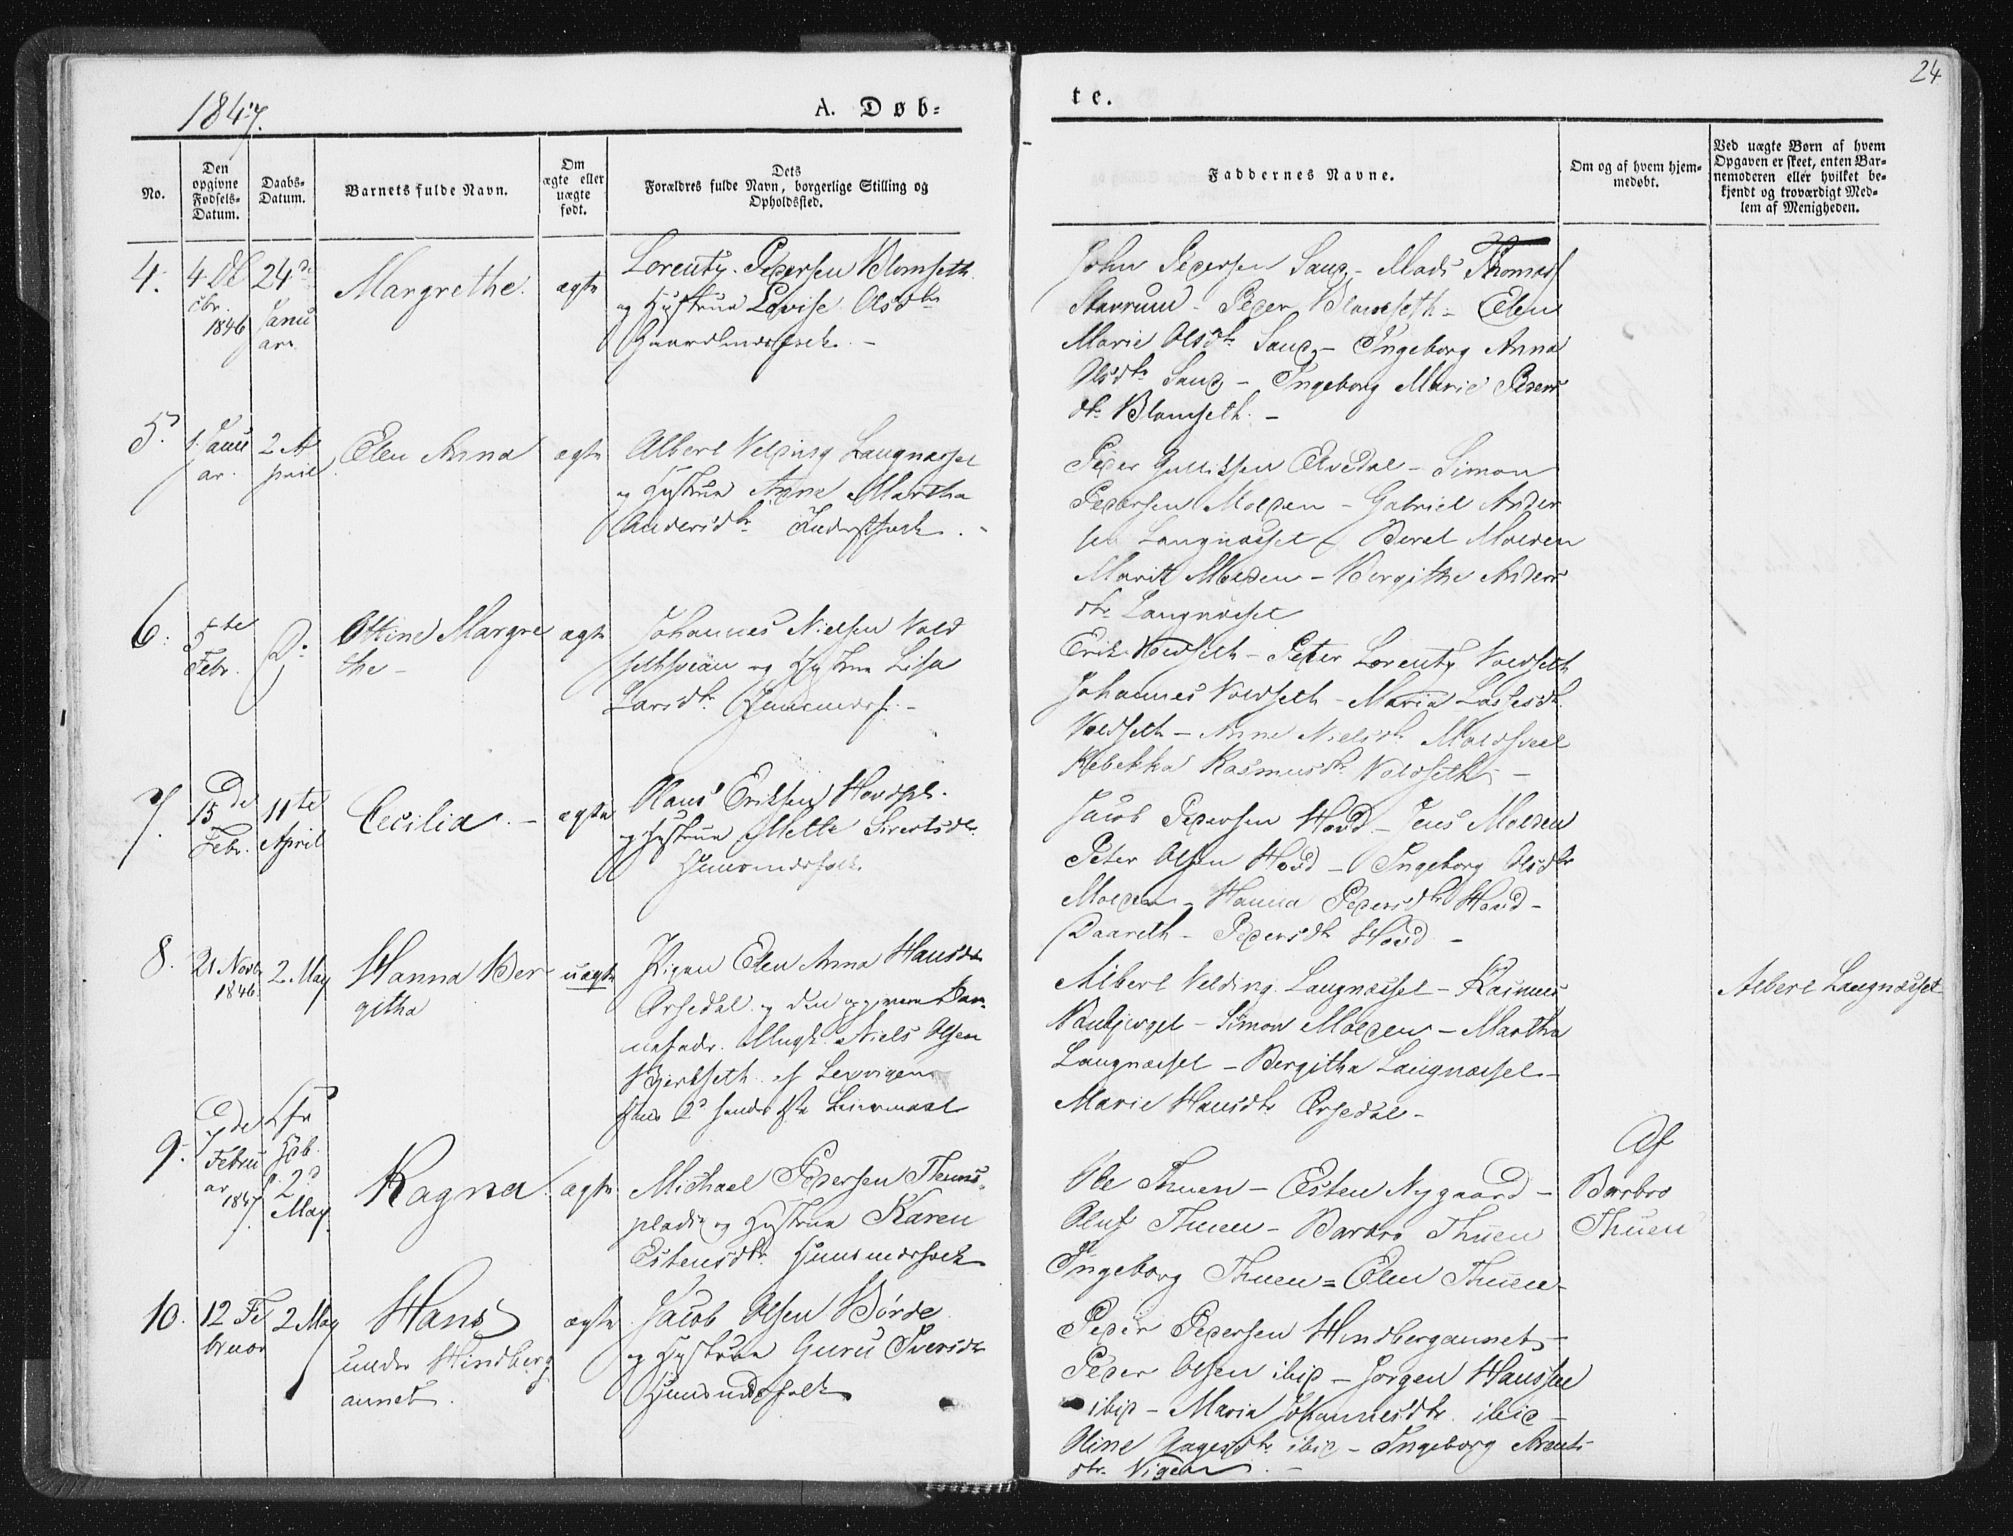 24
1847.
A. Døb-
te.
No.
Den opgivne Fødsels-Datum.
Daabs-Datum.
Barnets fulde Navn.
Om ægte eller uægte født.
Dets Forældres fulde Navn, borgerlige Stilling og Opholdssted.
Faddernes Navne.
Om og af hvem hjemmedøbt.
Ved uægte Børn af hvem Opgaven er skeet, enten Barnemoderen eller hvilket bekjendt og troværdigt Medlem af Menigheden.
4.
4 De
cbr.
1846
24de
Janu
ar.
Margrethe.
ægte
Lorentz Pedersen Blomseth
og Hustrue Lovise Olsdtr
Gaardmandsfolk. -
John Pedersen Saug - Mads Thomas
Stavrum - Peder Blomseth - Elen
Marie Olsdtr Saug - Ingeborg Anna
Olsdtr Saug - Ingeborg Marie Peders
dtr Blomseth. -
5.
1. Janu
ar.
2 A
pril
Elen Anna
ægte
Albert Velding Langnæsset
og Hustrue Anne Martha
Andersdtr
Peder Gulliksen Elvedal - Simon
Pedersen Molden - Gabriel Ander
sen Langnæsset - Beret Molden
Marit Molden - Bergithe Anders
dtr Langnæsset
6.
5te
Febr.
D:
Oline Margre
the -
ægte
Johannes Nielsen Vold
og Hustrue Lisa
Larsdtr
Erik Voldseth - Peter Lorentz Voldseth
Johannes Voldseth - Maria Lassesdtr
Voldseth - Anne Nielsdtr
Rebekka Rasmusdtr Voldseth -
7.
15de
Febr.
11te
April
Cecilia. -
ægte
Olaus Eriksen Hovdpl.
og Hustrue Mette Sivertsdtr.
Huusmandsfolk.
Jacob Pedersen Hovd - Jens Molden
Peter Olsen Hovd - Ingeborg Olsdtr
Molden - Hanna Pedersdtr Hovd -
Pedersdtr Hovd -
8.
21 Novb.
1846.
2. May
Hanna Ber
githa
uægte
Pigen Elen Anna Hansdtr
Ørsedal og den opgivne Bar-
nefader Ungk. Niels Olsen
Bjerkseth af Lexvigen
hans 2d hendes 1ste Leiermaal
Albert Velding Langnæsset - Rasmus
Simon Molden - Martha
Langnæsset - Bergitha Langnæsset -
Marie Hansdtr Ørsedal -
Albert Langnæsset
9.
7de
Febru
ar
1847.
Hjb.
2d
May.
Ragna
ægte
Michael Pedersen Thuns-
pladsen og Hustrue Karen
Estensdtr. Huusmandsfolk
Ole Thuen - Esten Nygaard -
Oluf Thuen - Barbro Thuen
Ingeborg Thuen = Elen Thuen -
Af
Barbro
Thuen
10.
12 Fe
bruar
2 May
Hans
under Hindberg
annet.
ægte
Jacob Olsen Børde
og Hustrue Guru Iversdtr
Huusmandsfolk
Peder Pedersen Hindbergannet -
Peder Olsen ibid - Jørgen Hanssen
ibid - Maria Johannesdtr. ibid -
Oline Aagesdtr. ibid - Ingeborg Arnts
dtr. Vigen. -